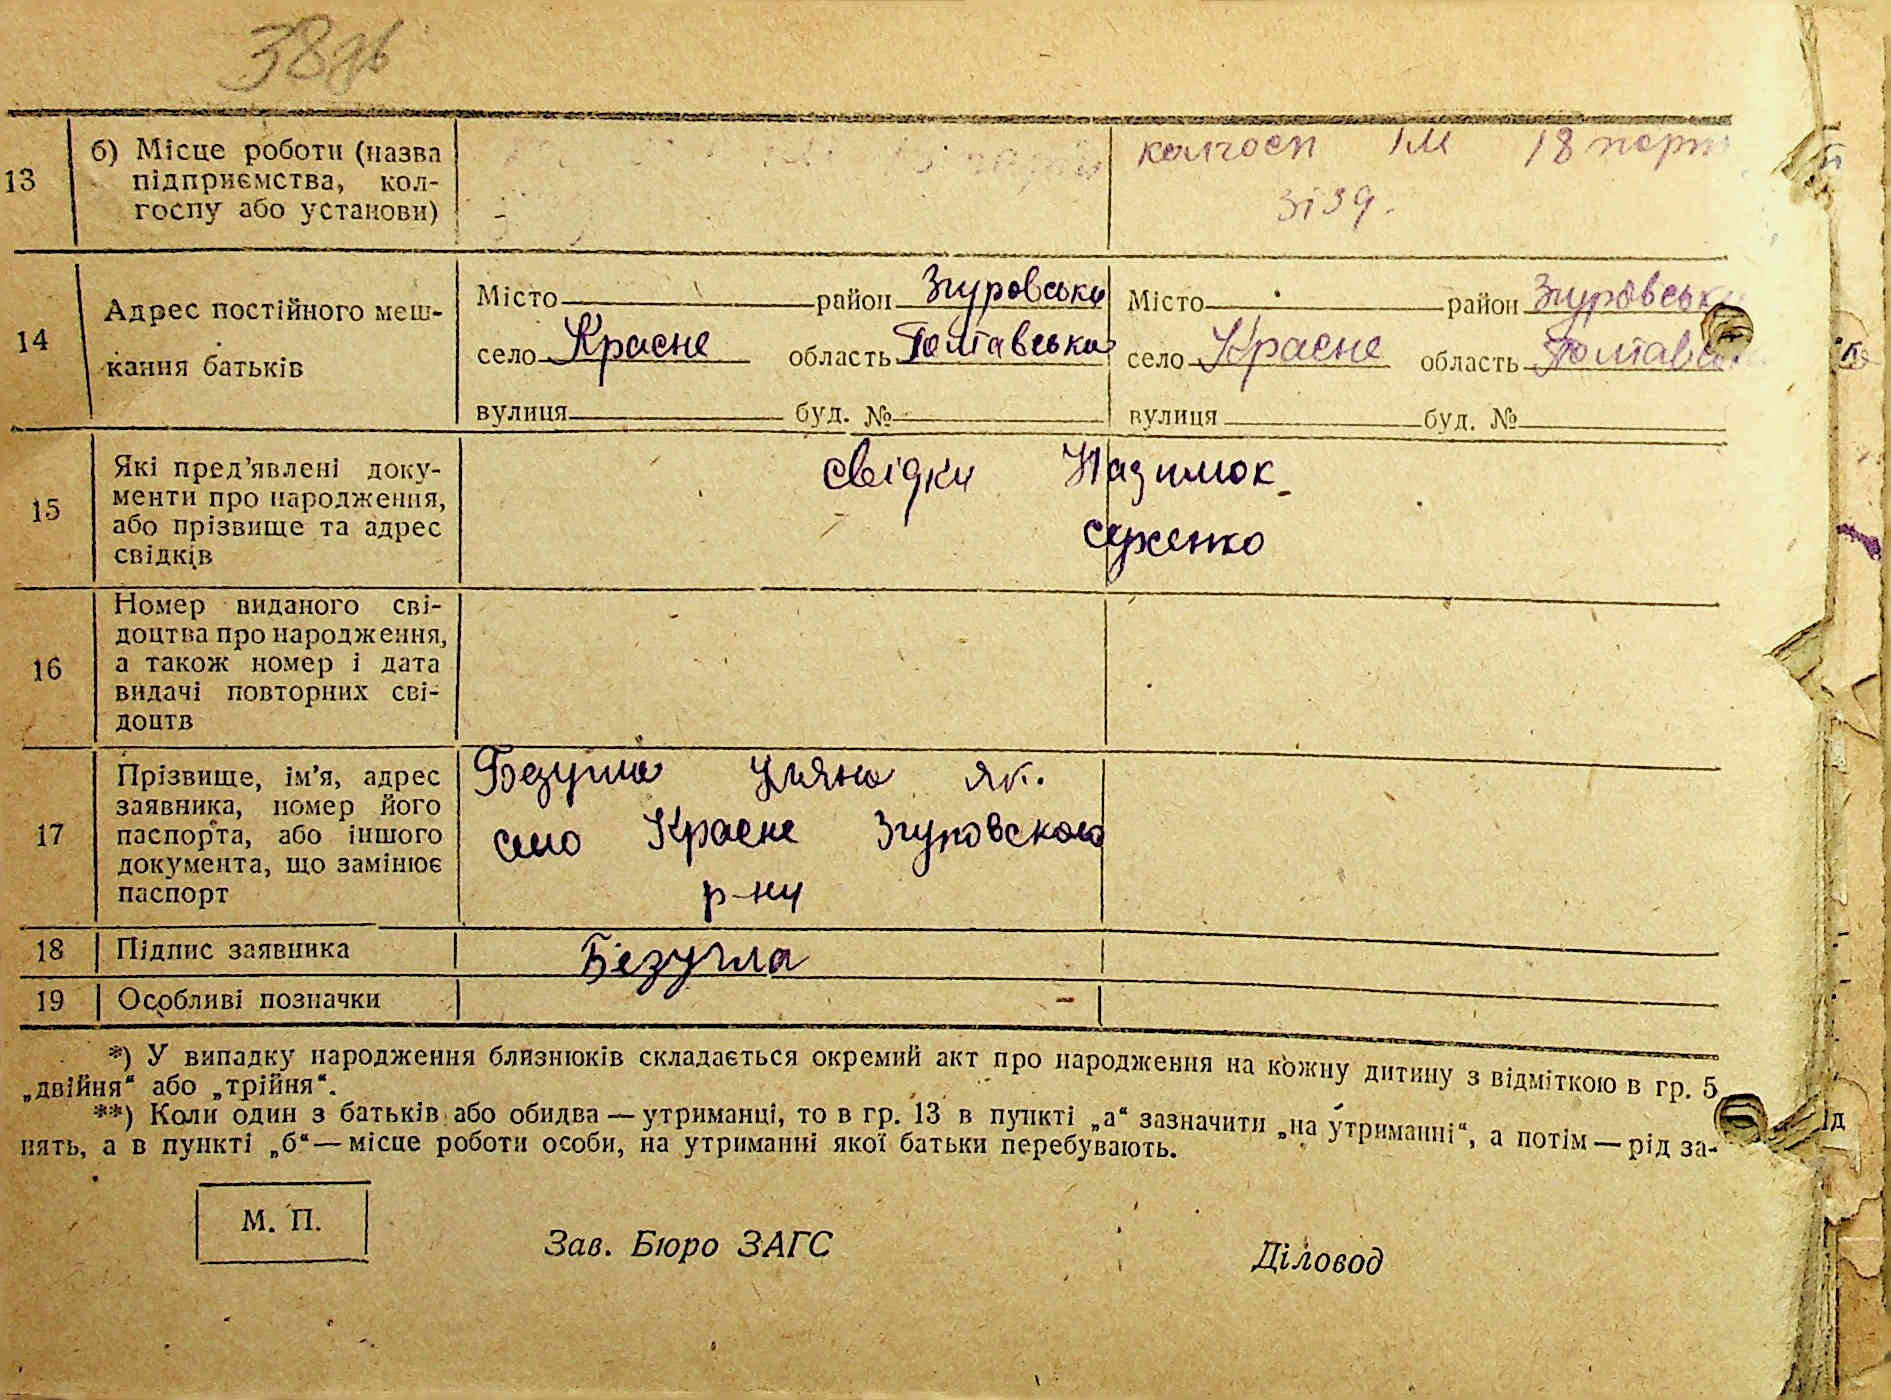 38
13
б) Місце роботи (назва
підприємства, кол-
госпу або установи)
колгосп Ім 18 парт
зізд.
14
Адрес постійного меш-
кання батьків
Місто район Згуровськи
село Красне область Полтавська
вулиця буд. №
Місто район Згуровськ
село Красне область Полтавськ
вулиця буд. №
15
Які пред’явлені доку-
менти про народження,
або прізвище та адрес
свідків
свідки
16
Номер виданого сві-
доцтва про народження,
а також номер і дата
видачі повторних сві-
доцтв
17
Прізвище, ім’я, адрес
заявника, номер його
паспорта, або іншого
документа, що замінює
паспорт
Безугла Уляна Як.
село Красне Згуровского
р-ну
18
Підпис заявника
Безугла
19
Особливі позначки
*) У випадку народження близнюків складається окремий акт про народження на кожну дитину з відміткою в гр. 5
„двійня“ або „трійня“.
**) Коли один з батьків або обидва — утриманці, то в гр. 13 в пункті „а“ зазначити „на утриманні“, а потім — рід за-
нять, а в пункті „б“ — місце роботи особи, на утриманні якої батьки перебувають.
М. П.
Зав. Бюро ЗАГС
Діловод